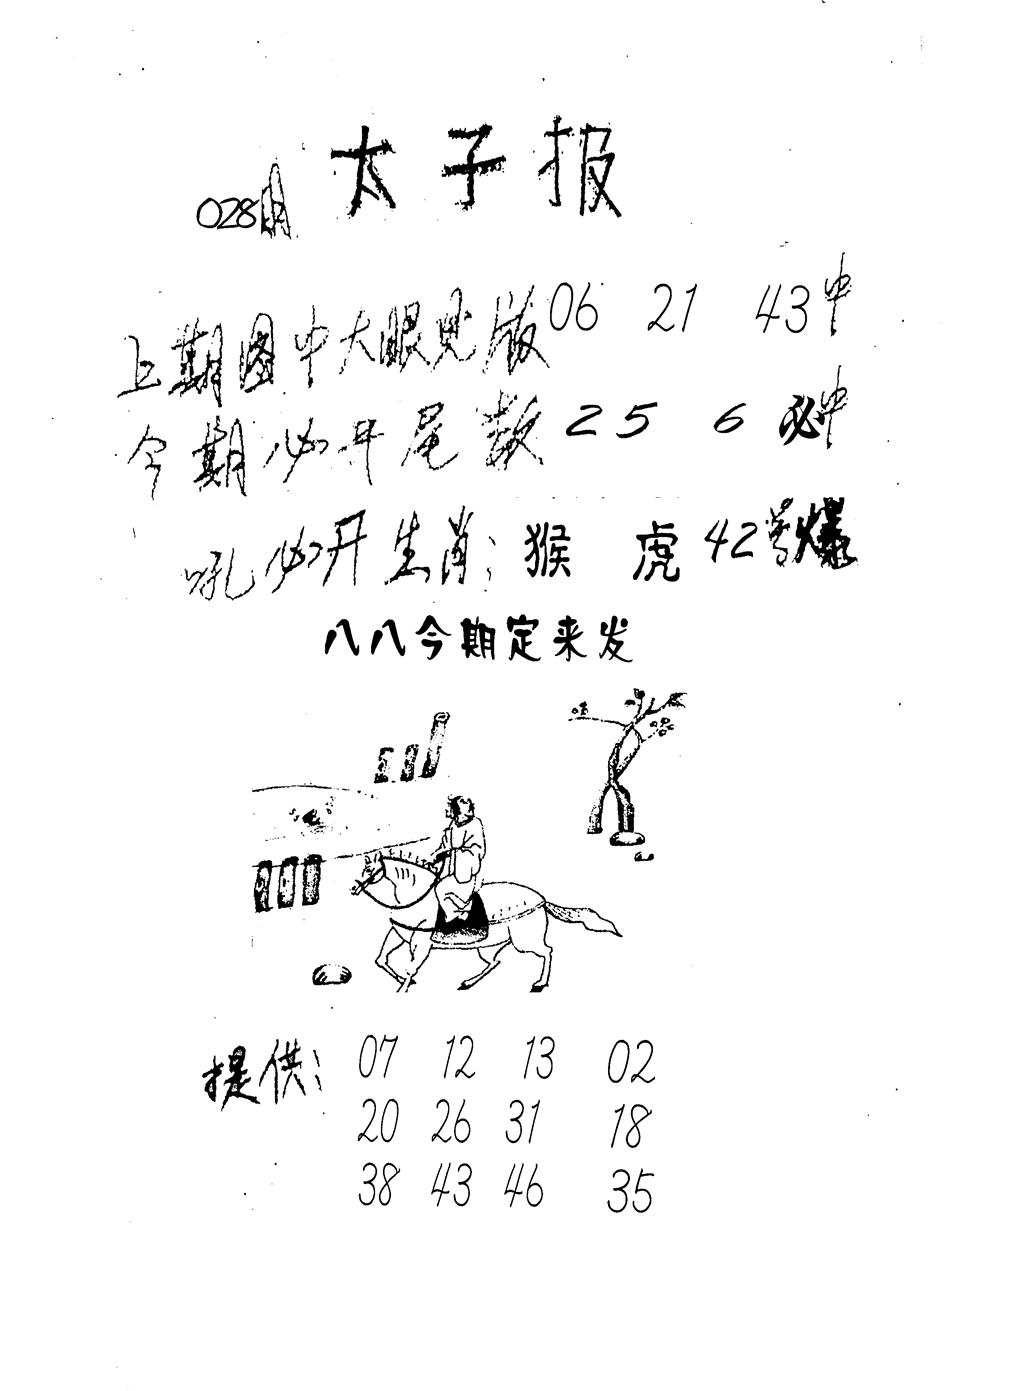 太子报
028期
上期图中大眼见版06 21 43中
今期必开尾数25 6必中
吼必开生肖：猴 虎 42号爆
八八今期定来发
提供：07 12 13 02
20 26 31 18
38 43 46 35